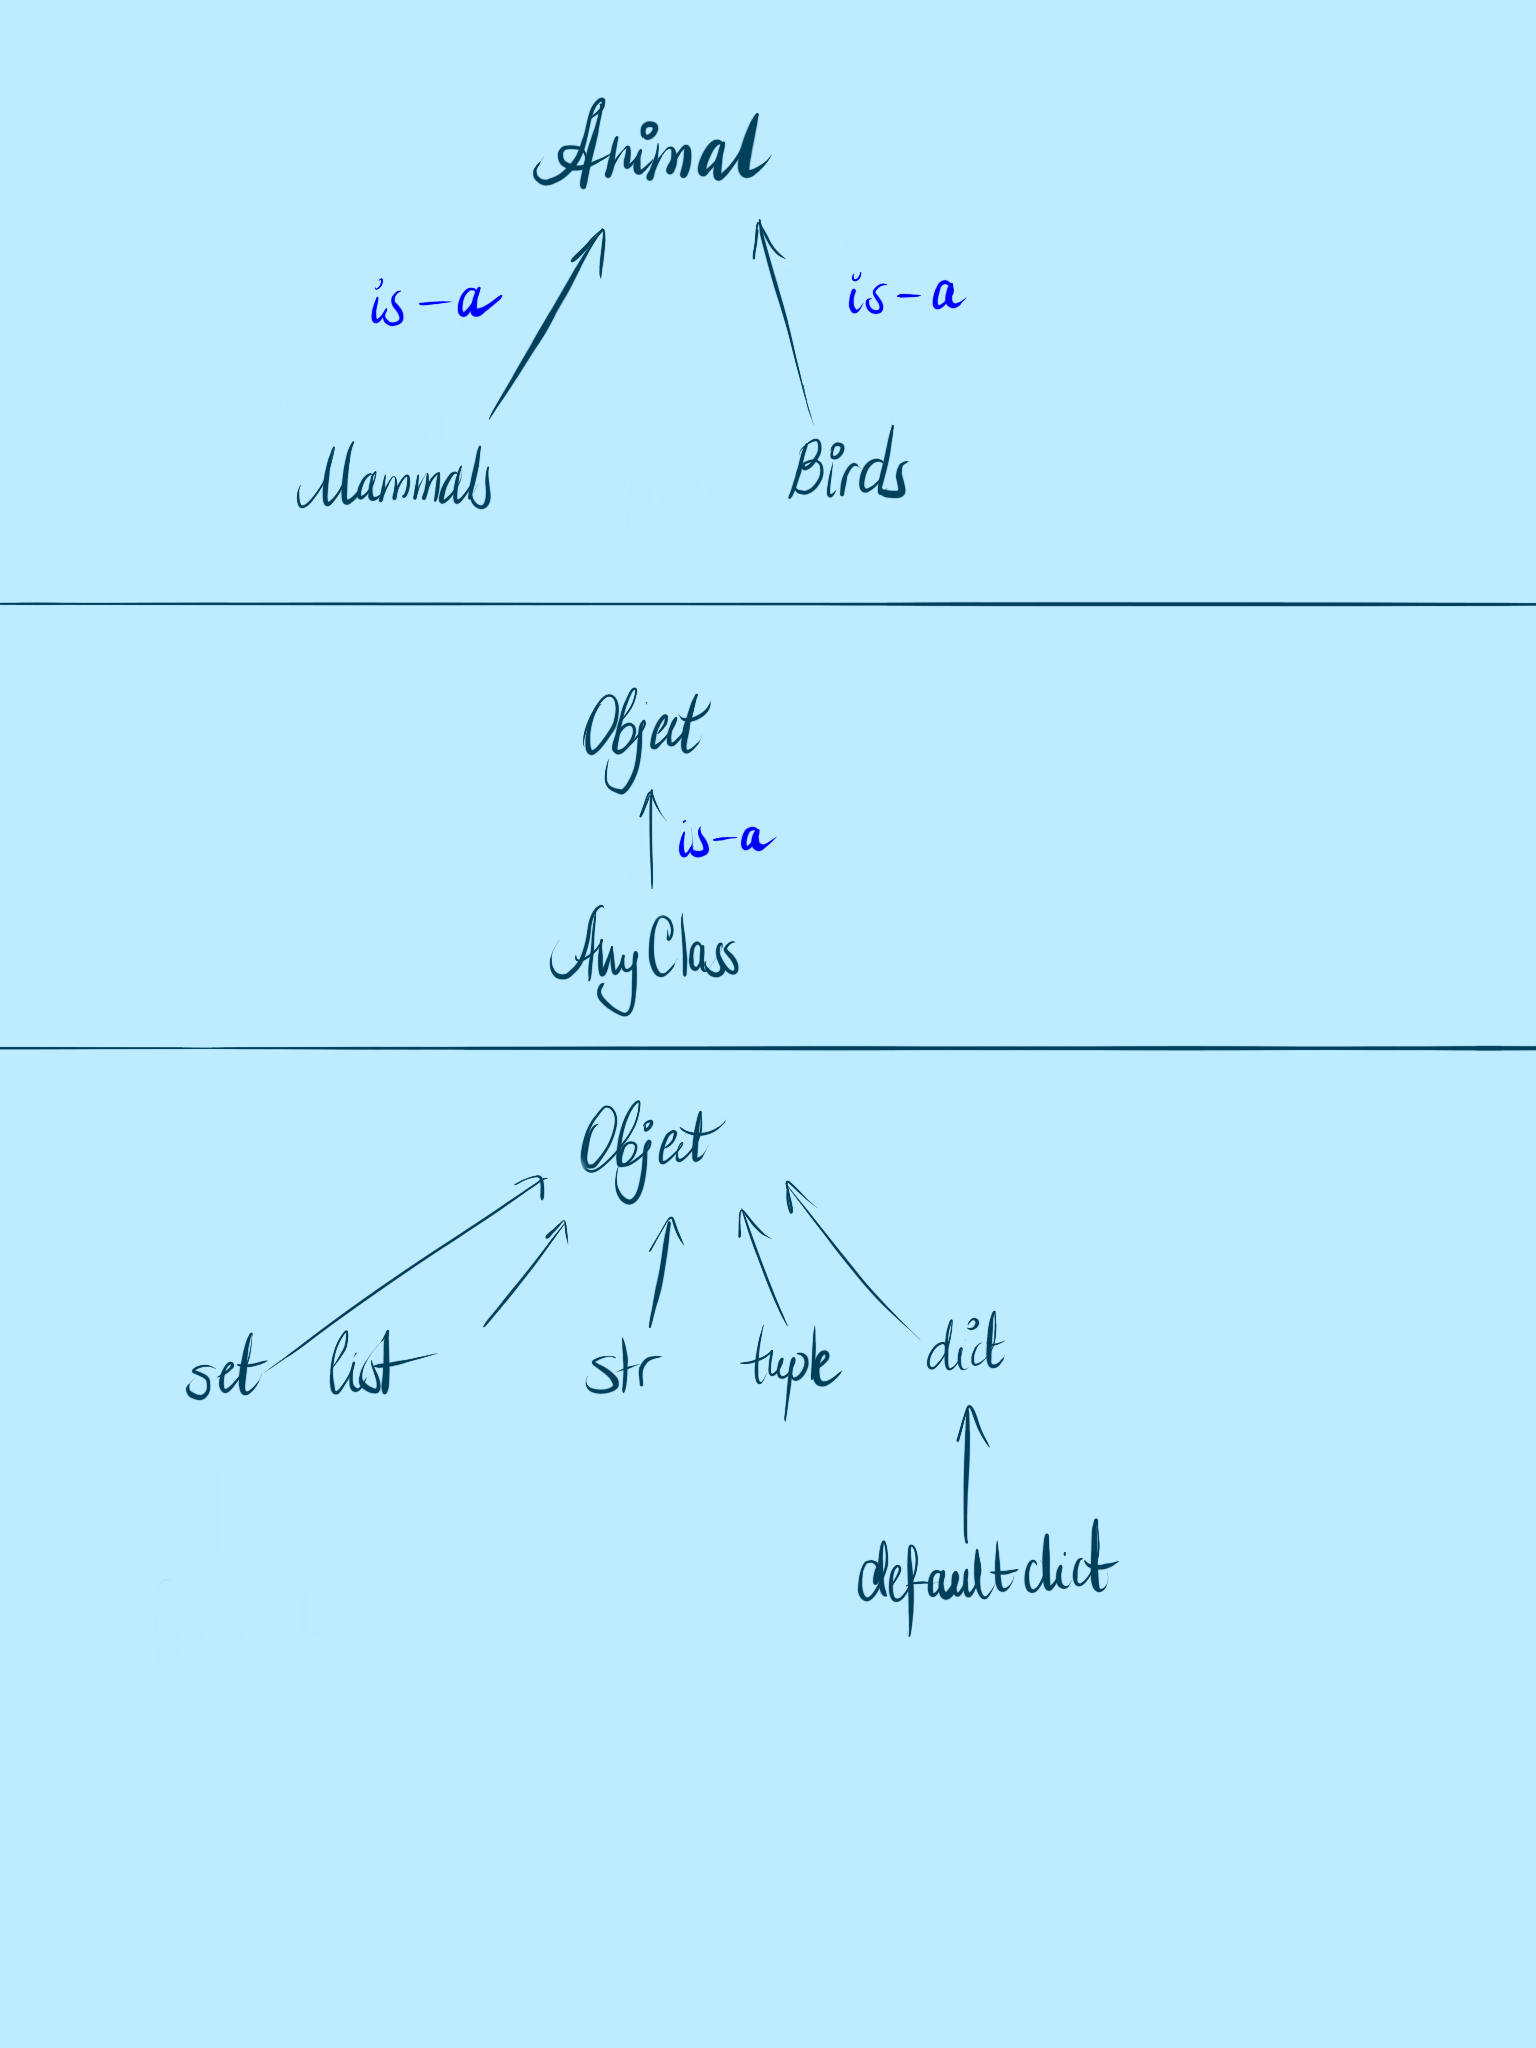 Animal
is-a is-a
Mammals Birds
Object
is-a
AnyClass
Object
set list str tuple dict
defaultdict